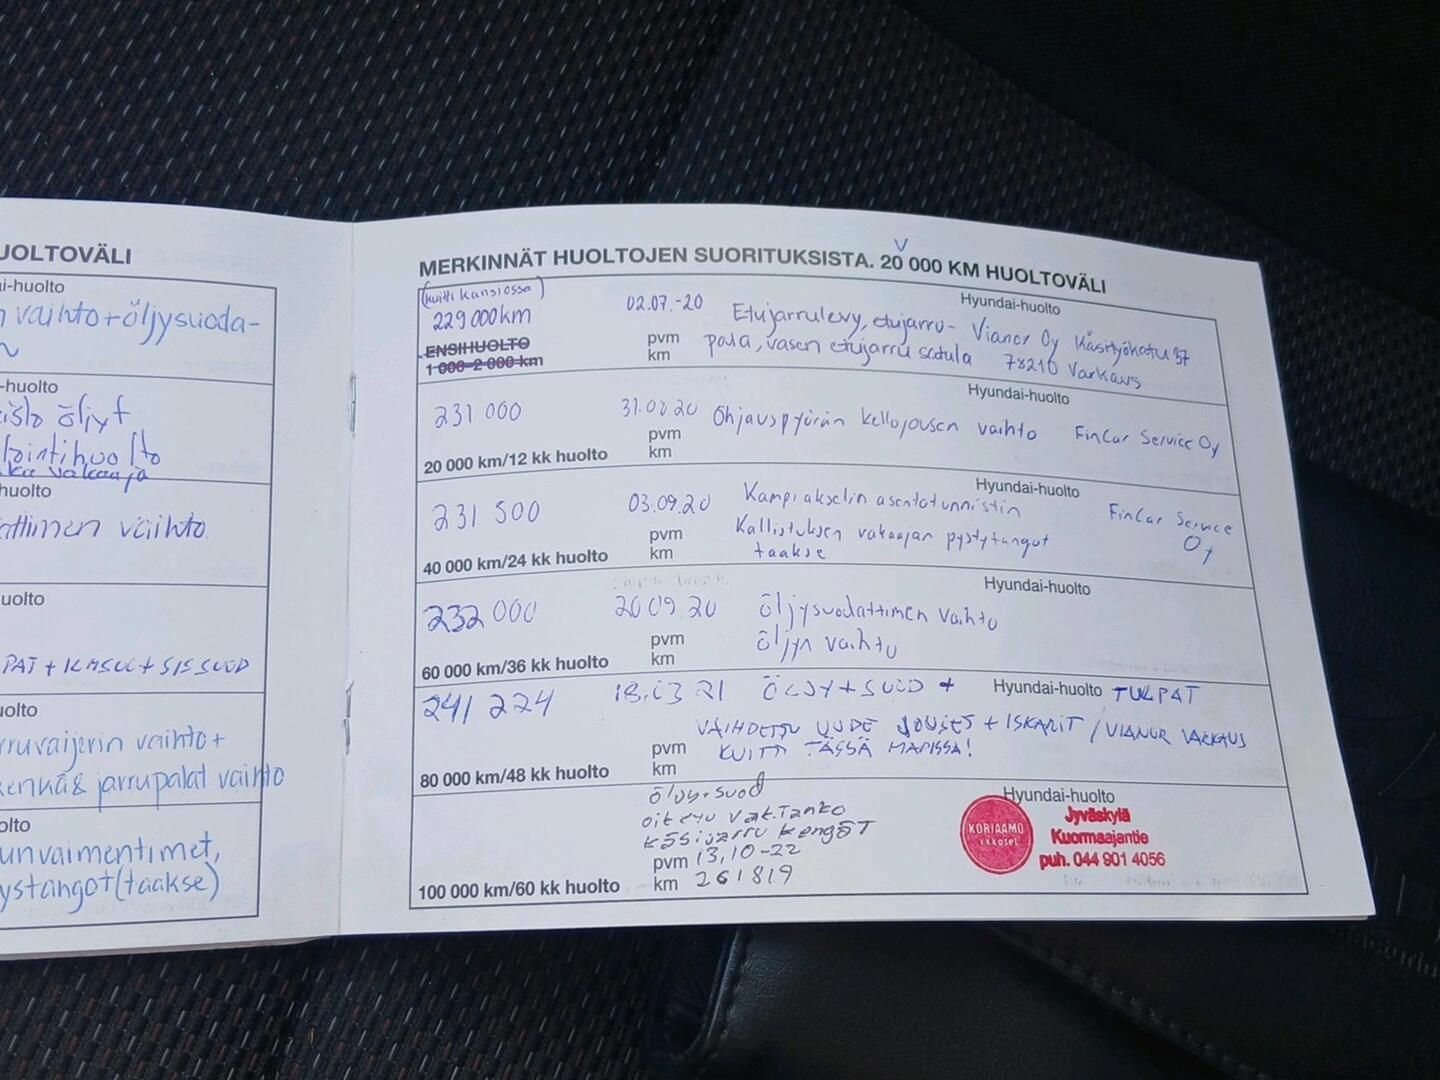 UOLTOVÄLI
ai-huolto
n vaihto+öljysuoda-
-huolto
öljyt
huolto
vakaaja
huolto
attimen vaihto
uolto
PAT + + SISSUOD
olto
rruvaijerin vaihto+
enkä& jarrupalat vaihto
olto
unvaimentimet,
ystangot(taakse)
MERKINNÄT HUOLTOJEN SUORITUKSISTA. 20 000 KM HUOLTOVÄLI
V
(kuitti kansiossa)
229 000 km
ENSIHUOLTO
1 000-2 000 km
02.07.-20
pvm
km
Hyundai-huolto
Etujarrulevy, etujarru-
pala, vasen etujarru satula
Vianor Oy Käsityökatu 37
78210 Varkaus
231 000
20 000 km/12 kk huolto
31.08 20
pvm
km
Hyundai-huolto
Ohjauspyörän kellojousen vaihto
FinCar Service Oy
231 500
40 000 km/24 kk huolto
03.09.20
pvm
km
Hyundai-huolto
Kampiakselin asentotunnistin
Kallistuksen vakaajan pystytangot
taakse
FinCar Service
Oy
232 000
60 000 km/36 kk huolto
20 09. 20
pvm
km
Hyundai-huolto
öljysuodattimen vaihto
öljyn vaihto
241 224
80 000 km/48 kk huolto
18.03 21
pvm
km
ÖLJY + SUOD +
Hyundai-huolto
TULPAT
VAIHDETTU UUDE JOUSET + ISKARIT / VIANOR VARKAUS
KUITTI TÄSSÄ MAPISSA!
100 000 km/60 kk huolto
öljy+suod
oik etu vak.tanko
käsijarru kengät
pvm 13,10-22
km 261819
Hyundai-huolto
KORJAAMO
Ikkoset
Jyväskylä
Kuormaajantie
puh. 044 901 4056